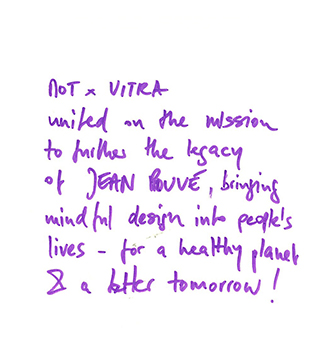 NOT x VITRA
united on the mission
to further the legacy
of JEAN PROUVÉ, bringing
mindful design into people's
lives – for a healthy planet
& a better tomorrow!